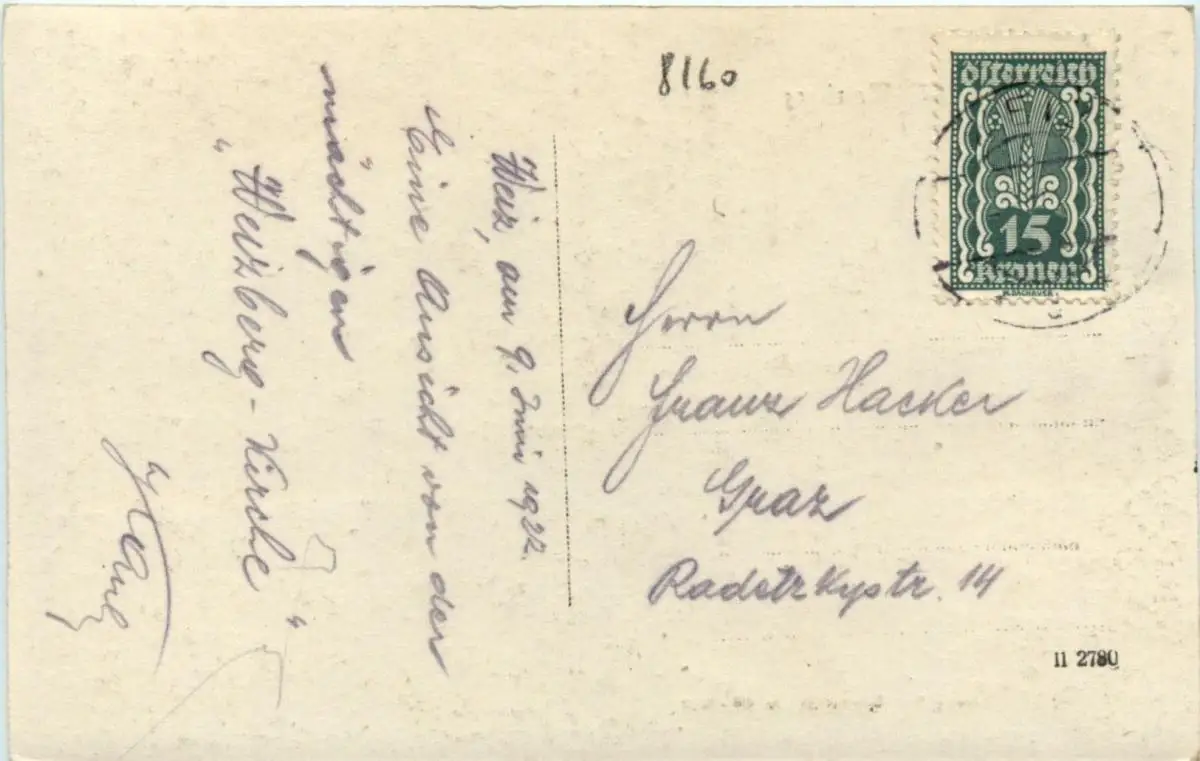 8160
Österreich
15
Kronen
Weiz, am 9. Juni 1922.
Eine Ansicht von der
mächtigen
"Weizberg-Kirche"
Herrn
Franz Hacker
Graz
Radetzkystr. 14
11 2780